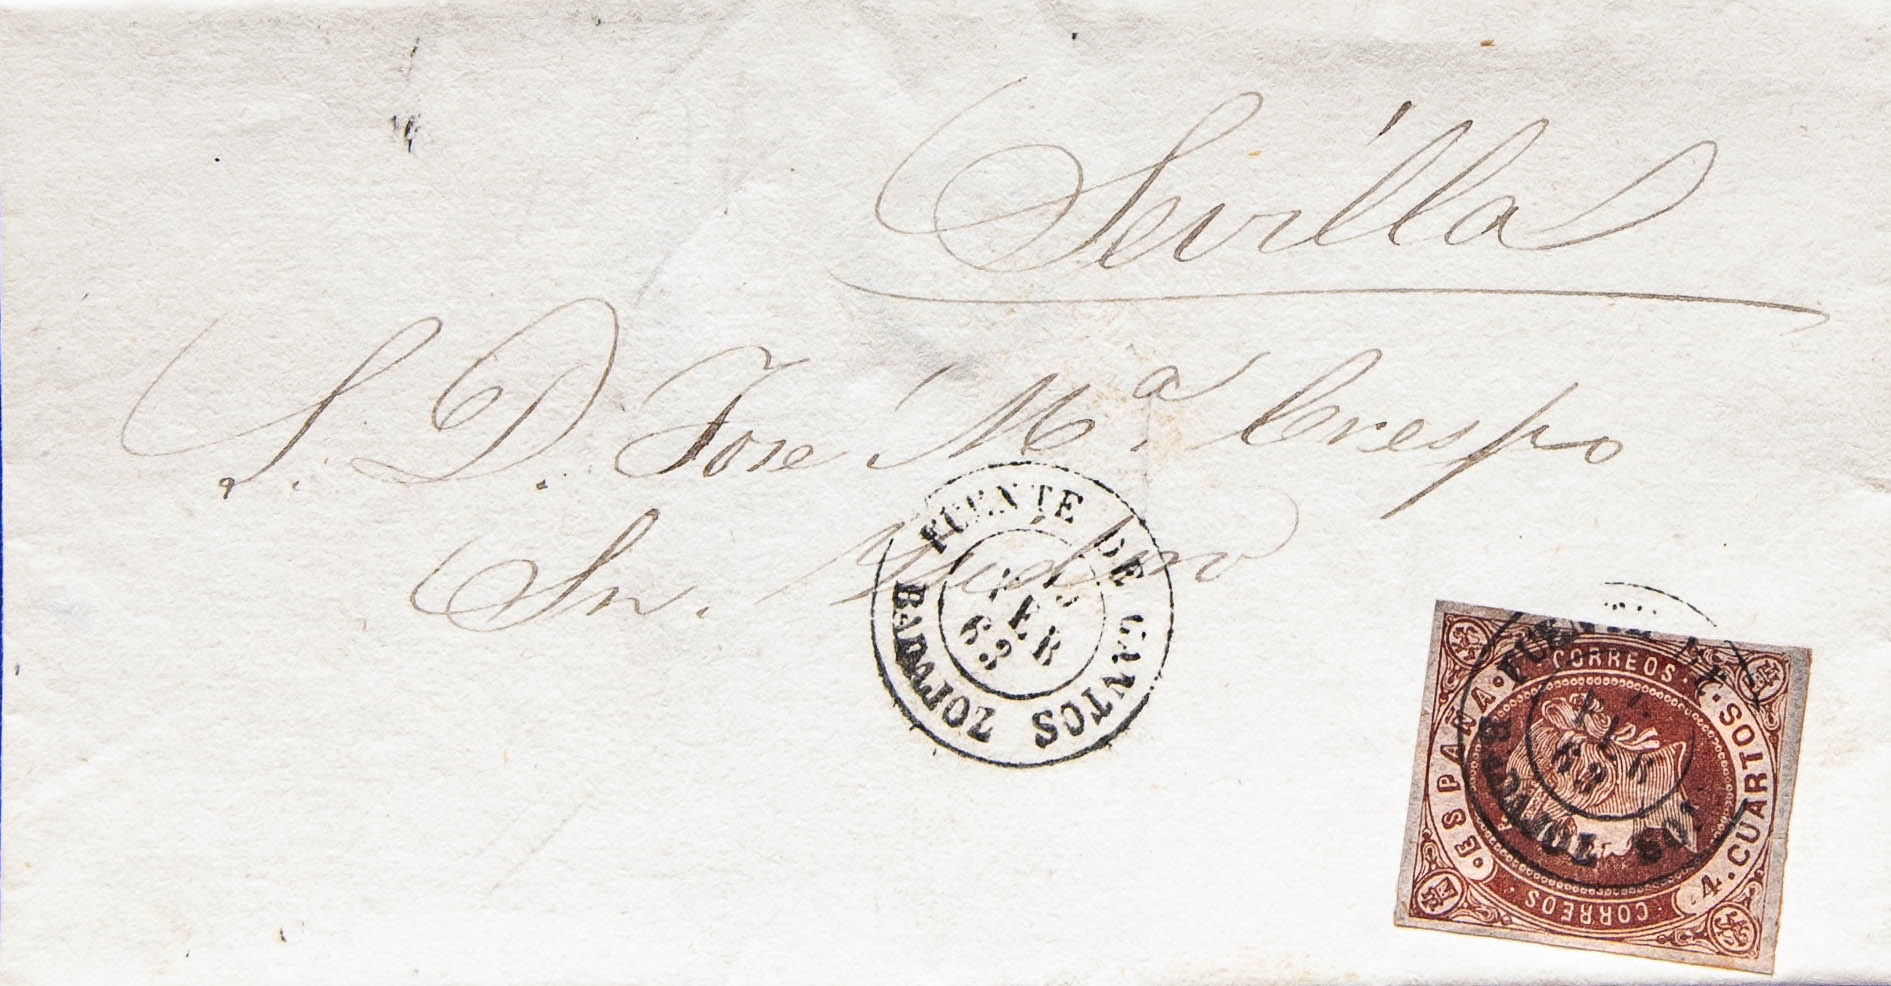 Sevilla
S. D. José Mª. Crespo
Sn. Ysidoro
FUENTE DE CANTOS
FEB
63
BADAJOZ
CORREOS
ESPAÑA
4.CUARTOS
CORREOS
BADAJOZ